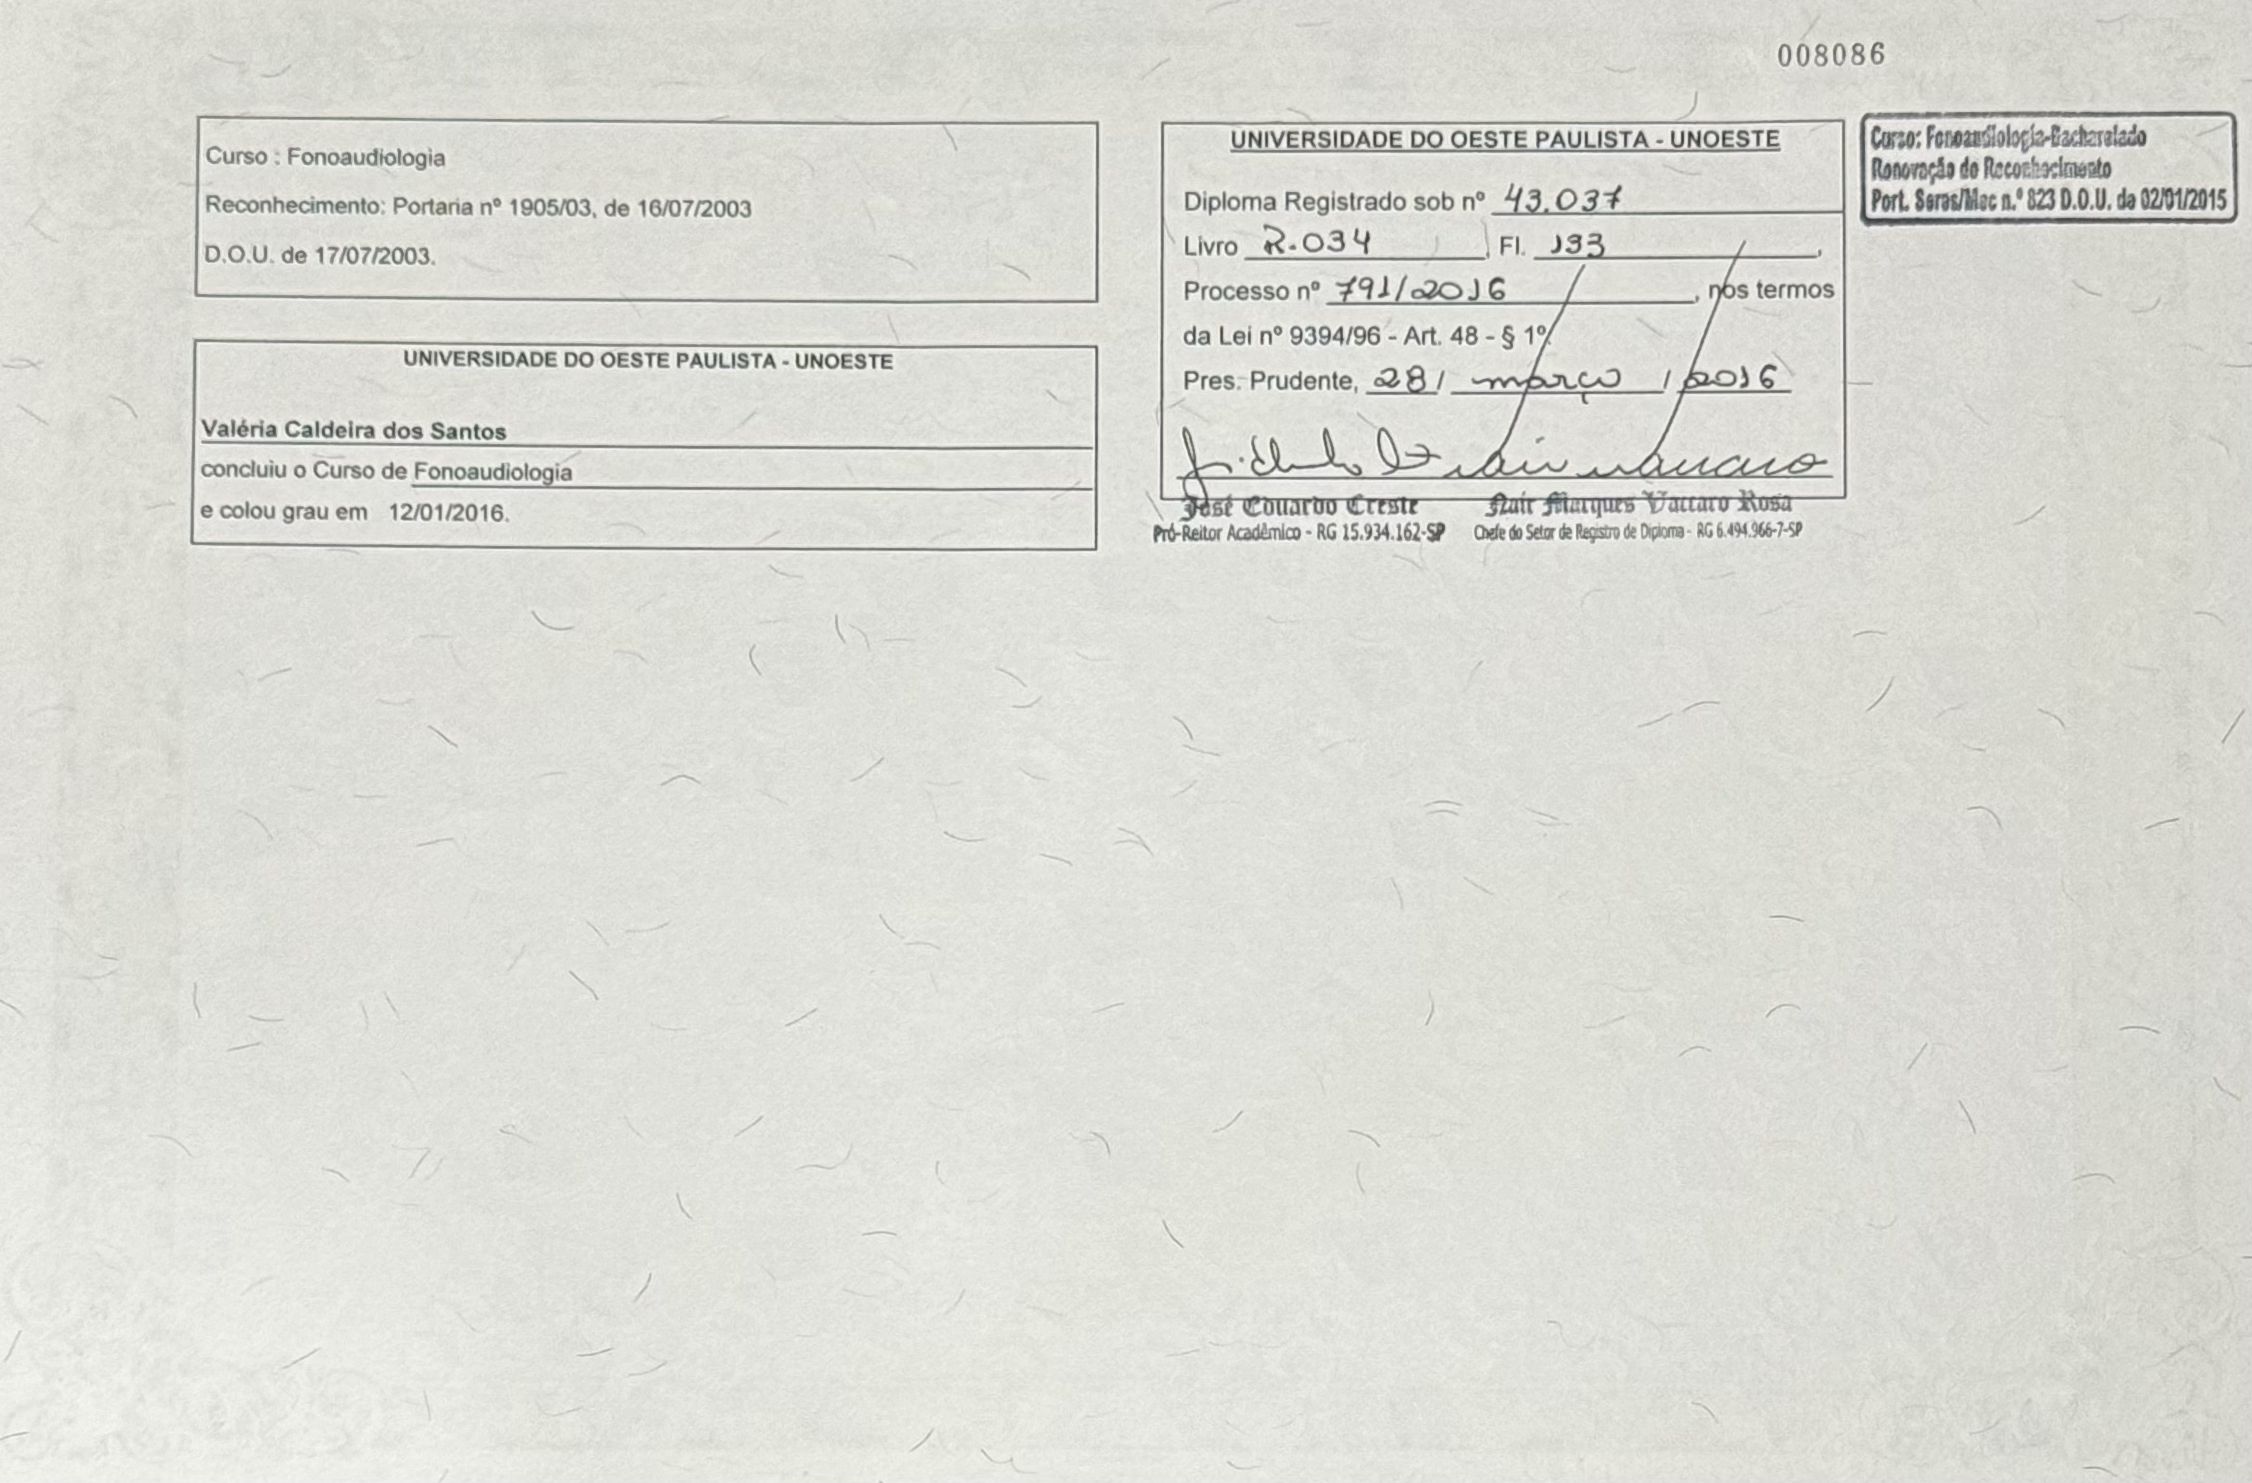 008086
Curso : Fonoaudiologia
Reconhecimento: Portaria nº 1905/03, de 16/07/2003
D.O.U. de 17/07/2003.
UNIVERSIDADE DO OESTE PAULISTA - UNOESTE
Valéria Caldeira dos Santos
concluiu o Curso de Fonoaudiologia
e colou grau em 12/01/2016.
UNIVERSIDADE DO OESTE PAULISTA - UNOESTE
Diploma Registrado sob nº 43.037
Livro R.034, Fl. 133,
Processo nº 791/2016, nos termos
da Lei nº 9394/96 - Art. 48 - § 1º.
Pres. Prudente, 28 / março / 2016
José Eduardo Creste Nair Marques Vaccaro Rosa
Pró-Reitor Acadêmico - RG 15.934.162-SP Chefe do Setor de Registro de Diploma - RG 6.494.966-7-SP
Curso: Fonoaudiologia-Bacharelado
Renovação de Reconhecimento
Port. Seres/Mec n.º 823 D.O.U. de 02/01/2015